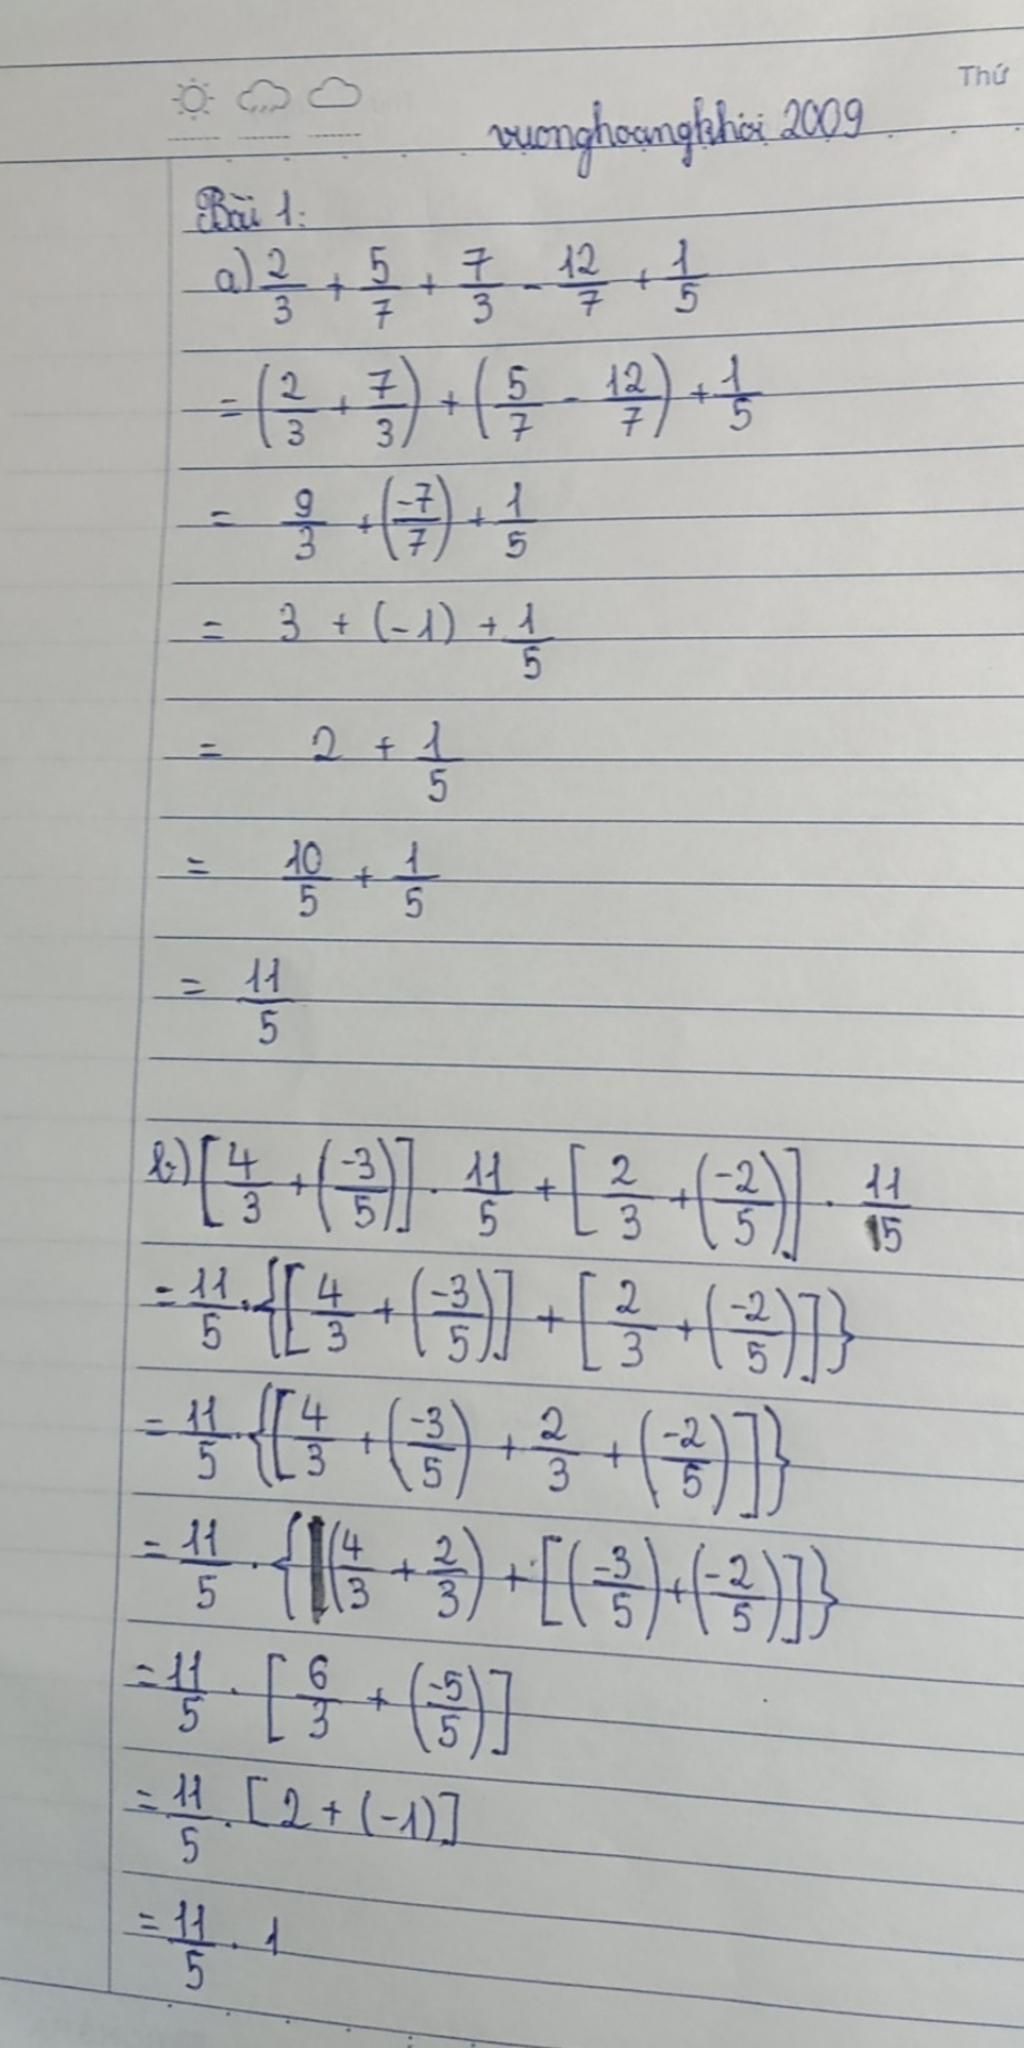 Thứ
vuonghoangkhôi 2009
Bài 1:
a) 2/3 + 5/7 + 7/3 - 12/7 + 1/5
= (2/3 + 7/3) + (5/7 - 12/7) + 1/5
= 9/3 + (-7/7) + 1/5
= 3 + (-1) + 1/5
= 2 + 1/5
= 10/5 + 1/5
= 11/5
b) [4/3 + (-3/5)] . 11/5 + [2/3 + (-2/5)] . 11/5
= 11/5 . {[4/3 + (-3/5)] + [2/3 + (-2/5)]}
= 11/5 . {[4/3 + (-3/5) + 2/3 + (-2/5)]}
= 11/5 . {(4/3 + 2/3) + [(-3/5) + (-2/5)]}
= 11/5 . [6/3 + (-5/5)]
= 11/5 . [2 + (-1)]
= 11/5 . 1